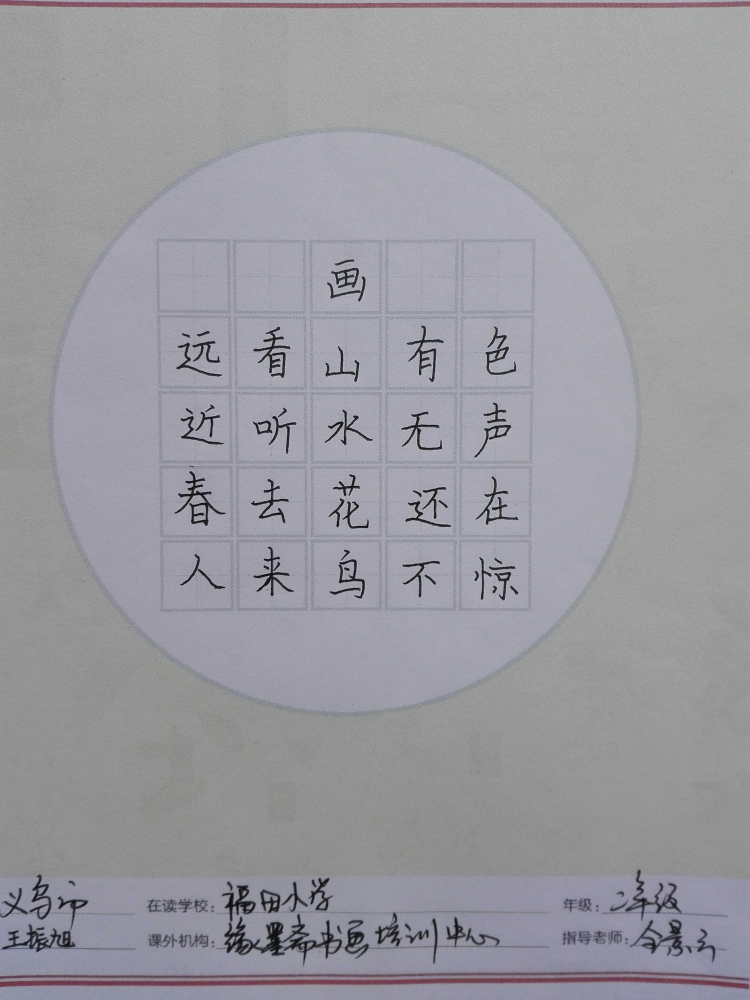 画
远看山有色
近听水无声
春去花还在
人来鸟不惊
义乌市 在读学校：福田小学 年级：二年级
王振旭 课外机构：缘墨斋书画培训中心 指导老师：全景云